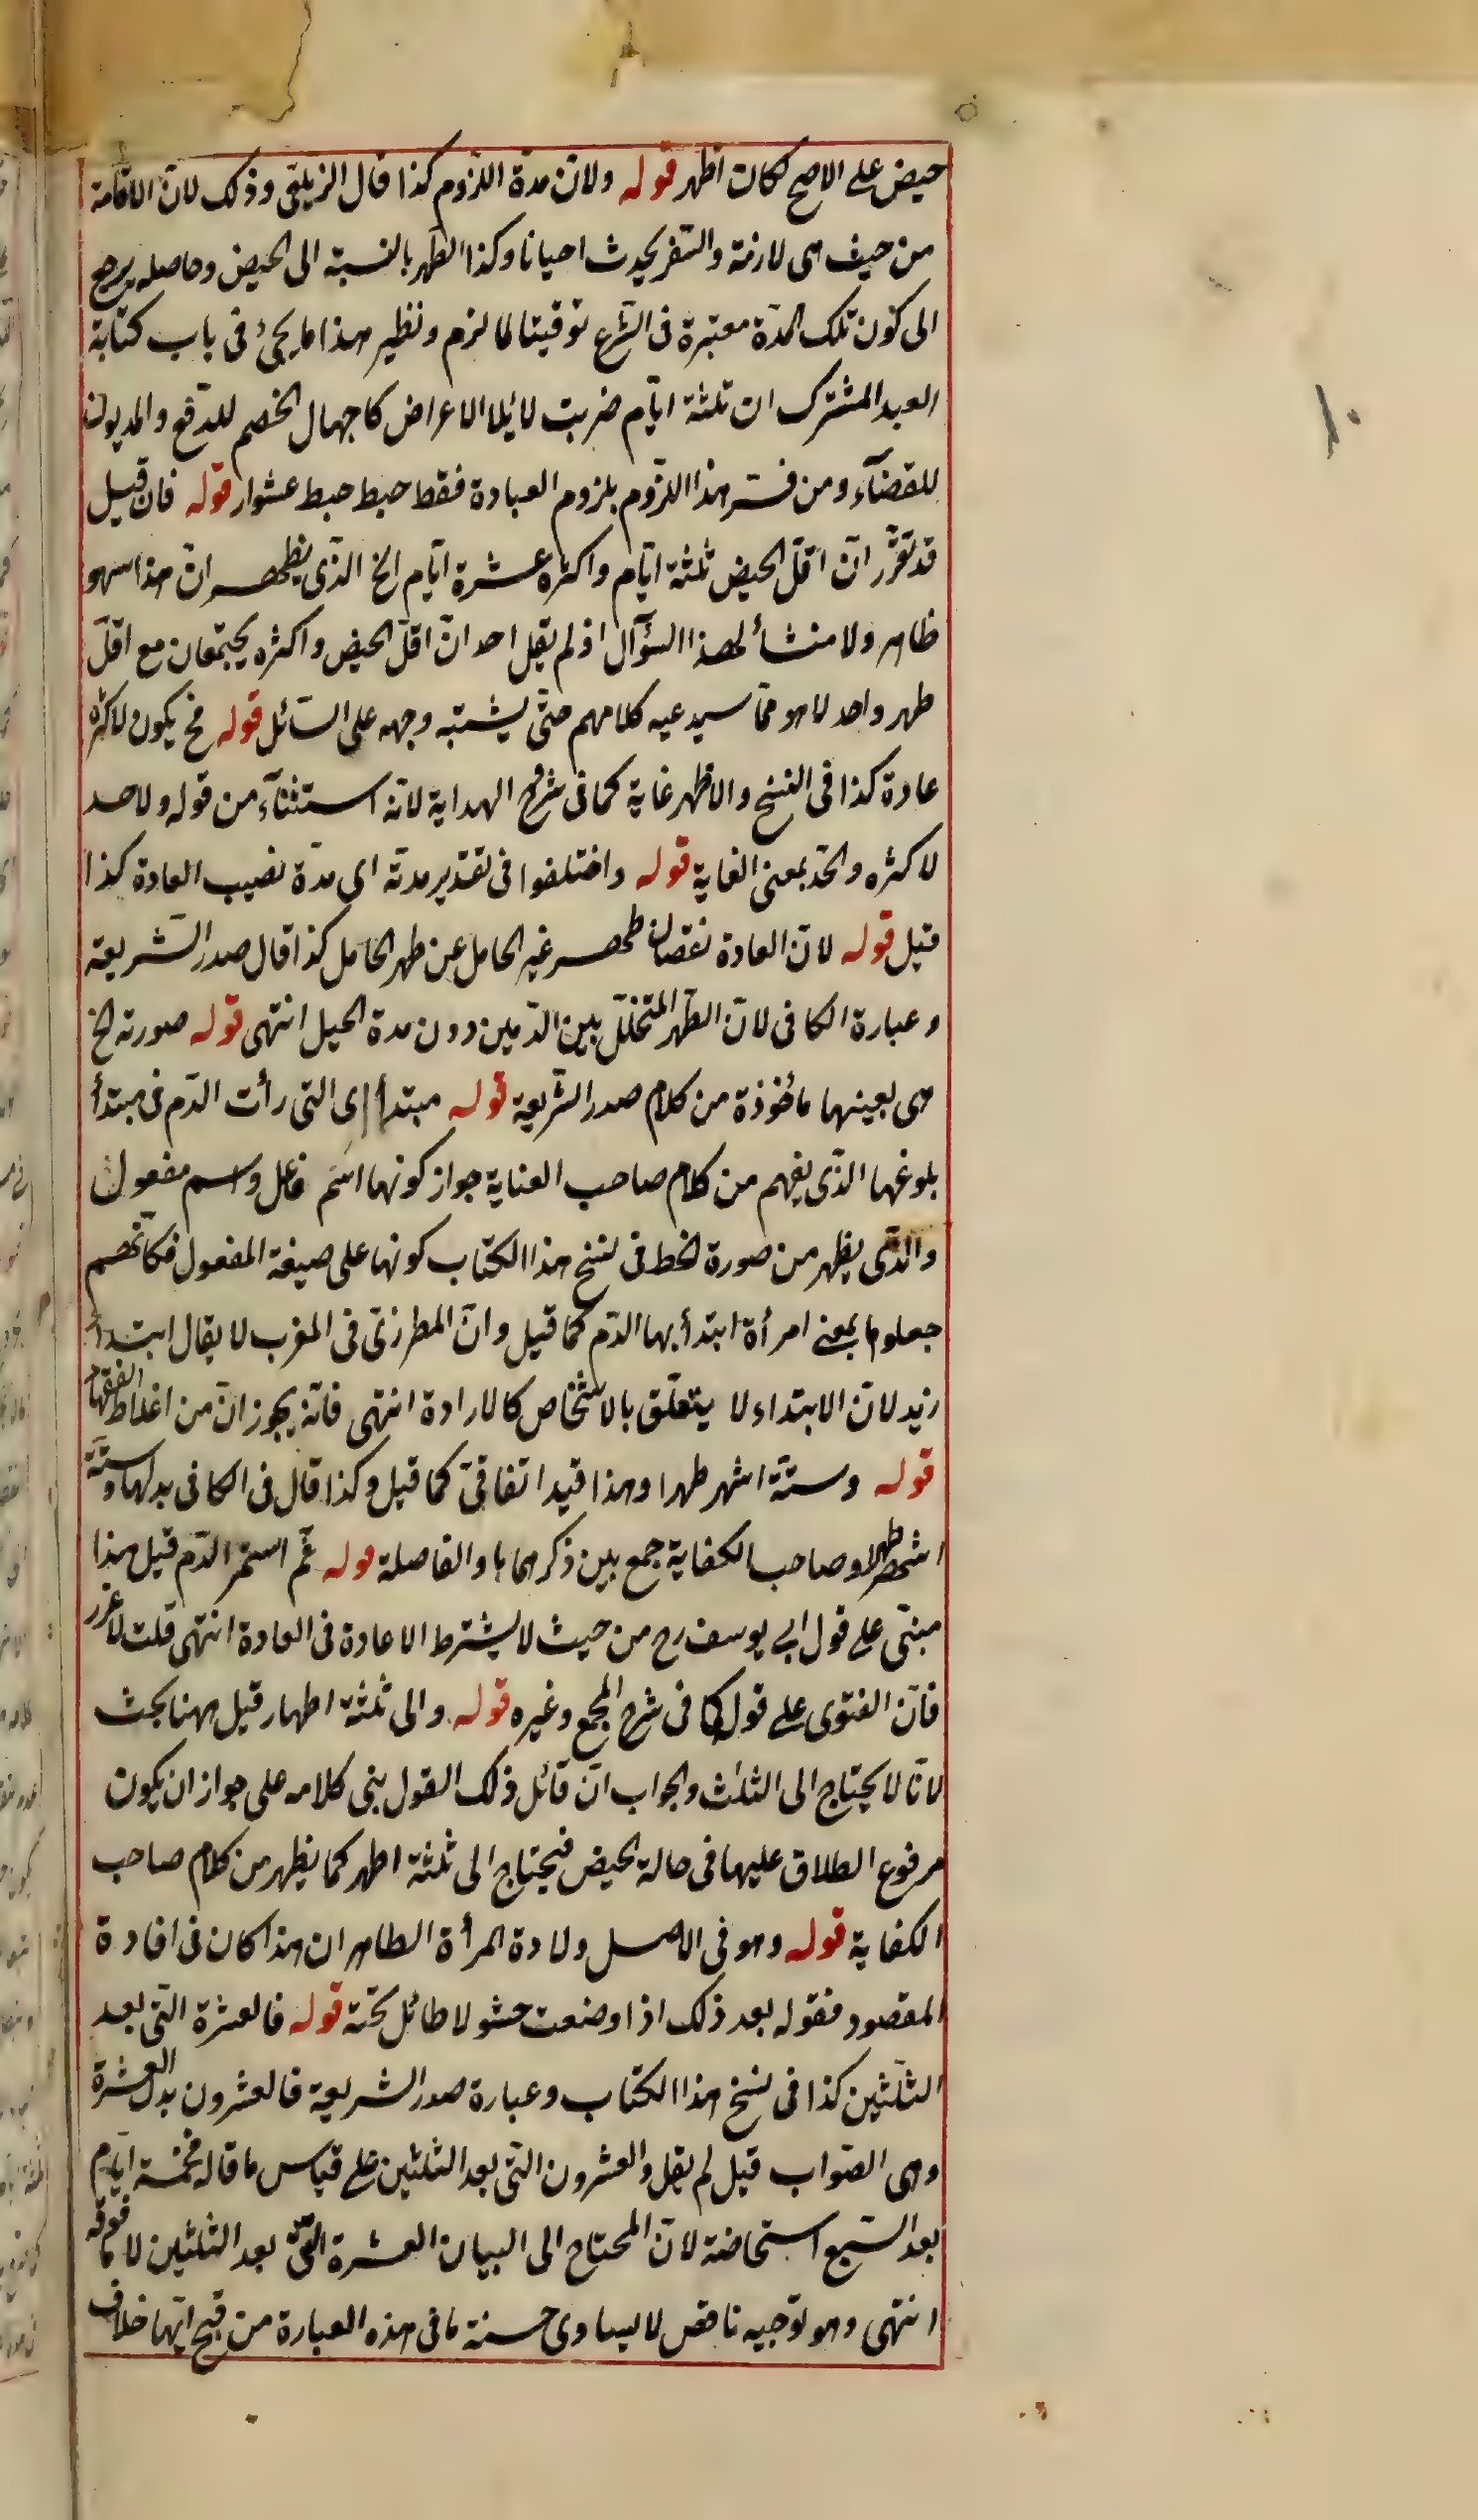 حيض على الاصح لكان اظهر قوله ولانّ مدّة اللزوم كذا قال الزيلعى وذلك لانّ الاقامة
من حيث هى لازمة والسّفر يحدث احيانا وكذا الطّهر بالنسبة الى الحيض وحاصله يرجع
الى كون تلك المدّة معتبرة فى الشّرع توقيتا لما لزم ونظير هذا ما يجئ فى باب كتابة
العبد المشترك ان ثلثة ايّام ضربت لابلاء الاعراض كامهال الخصم للدّفع والمديون
للقضآء ومن فسّر هذا اللزّوم بلزوم العبادة فقط خبط خبط عشواء قوله فان قيل
قد تقرّر انّ اقلّ الحيض ثلثة ايّام واكثره عشرة ايّام الخ الذّى يظهر انّ هذا سهو
ظاهر ولا منشأ لهذا السؤآل اذ لم يقل احد انّ اقلّ الحيض واكثره يجتمعان مع اقلّ
طهر واحد لا هو ممّا يستدعيه كلامهم حتّى يشتبه وجهه على السّائل قوله فح يكون لاكثره
عادة كذا فى النسخ والاظهر غاية كما فى شروح الهداية لانّه استثنآء من قوله ولا حد
لاكثره والحدّ بمعنى الغاية قوله واختلفوا فى تقدير مدته اى مدّة نصيب العادة كذا
قيل قوله لانّ العادة نقصان طهر غير الحامل عن طهر الحامل كذا قال صدر الشّريعة
وعبارة الكافى لانّ الطّهر المتخلّل بين الدّمين دون مدة الحبل انتهى قوله صورته الخ
هى بعينها مأخوذة من كلام صدر الشّريعة قوله مبتدأة اى التى رأت الدّم فى مبتدأ
بلوغها الذّى يفهم من كلام صاحب العناية جواز كونها اسم فاعل واسم مفعول
والذّى يظهر من صورة الخط فى نسخ هذا الكتاب كونها على صيغة المفعول فكانّهم
جعلوها بمعنى امرأة ابتدأ بها الدّم كما قيل وانّ المطرزىّ فى المغرب لا يقال ابتدأ
زيد لانّ الابتداء لا يتعلّق بالاشخاص كالارادة انتهى فانّه يجوز انّ من اغلاط الفقهاء
قوله وستّة اشهر طهرا وهذا قيد اتفاقىّ كما قيل وكذا قال فى الكافى بدلها وستّة
اشهر طهرا وصاحب الكفاية جمع بين ذكرهما باو الفاصلة قوله ثم استمرّ الدّم قيل هذا
مبنىّ على قول ابى يوسف رح من حيث لا يشترط الاعادة فى العادة انتهى قلت لا غرر
فانّ الفتوى على قوله كما فى شرح المجمع وغيره قوله والى ثلثة اطهار قيل ههنا بحث
لانّا لا يحتاج الى الثلاث والجواب انّ قائل ذلك القول بنى كلامه على جواز ان يكون
مرفوع الطلاق عليها فى حالة الحيض فيحتاج الى ثلثة اطهر كما يظهر من كلام صاحب
الكفاية قوله وهو فى الاصل ولادة المرأة الظاهر ان هذا كان فى افادة
المقصود فقوله بعد ذلك اذا وضعت حشو لا طائل تحته قوله فالعشرة التّى بعد
الثلثين كذا فى نسخ هذا الكتاب وعبارة صدر الشريعة فالعشرون بدل العشرة
وهى الصّواب قيل لم يقل والعشرون التّى بعد الثلثين على قياس ما قاله فخمسة ايّام
بعد السّبع استحاضة لانّ المحتاج الى البيان العشرة التّى بعد الثلثين لا ما فوقه
انتهى وهو توجيه ناقص لا يساوى حسنه ما فى هذه العبارة من قبح ايهام خلاف